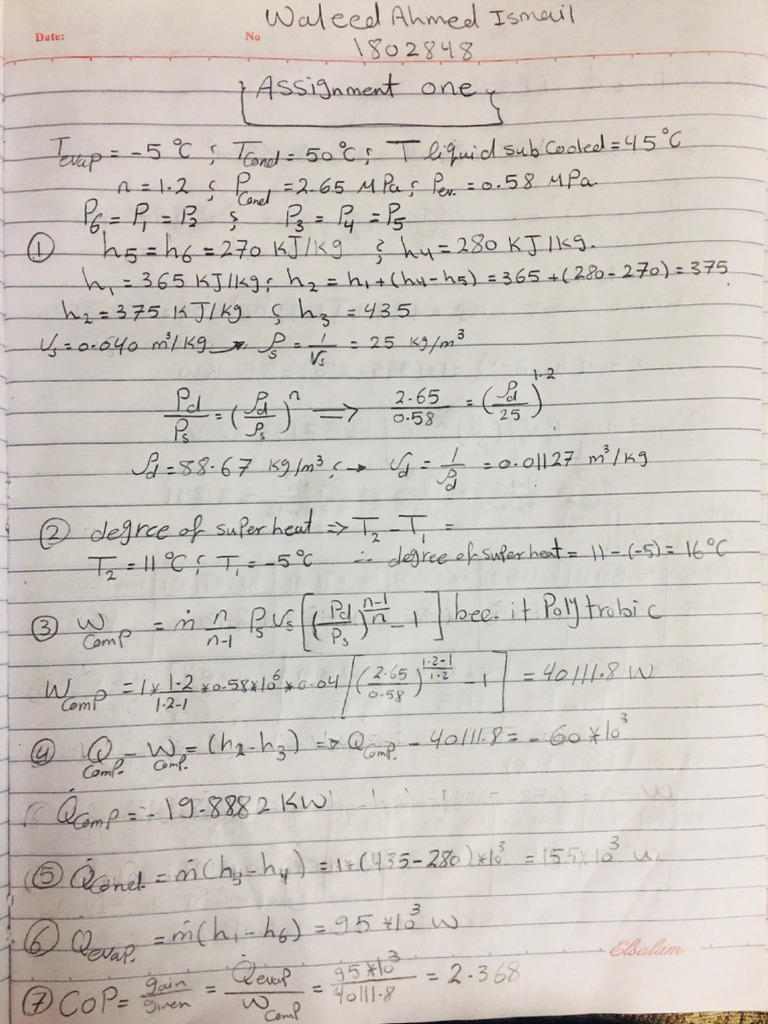 Waleed Ahmed Ismail
Date: No
1802848
Assignment one
T_evap = -5 °C ; T_cond = 50°C ; T liquid subcooled = 45°C
n = 1.2 ; P_cond = 2.65 MPa ; P_ev. = 0.58 MPa
P6 = P1 = P2 ; P3 = P4 = P5
① h5 = h6 = 270 KJ/kg ; h4 = 280 KJ/kg.
h1 = 365 KJ/kg ; h2 = h1 + (h4 - h5) = 365 + (280 - 270) = 375
h2 = 375 KJ/kg ; h3 = 435
Vs = 0.040 m³/kg → ρs = 1/Vs = 25 kg/m³
Pd/Ps = (ρd/ρs)^n ⟹ 2.65/0.58 = (ρd/25)^1.2
ρd = 88.67 kg/m³ ; → Vd = 1/ρd = 0.01127 m³/kg
② degree of super heat ⇒ T2 - T1 =
T2 = 11°C ; T1 = -5°C ∴ degree of superheat = 11 - (-5) = 16°C
③ W_comp = ṁ n/n-1 Ps Vs [(Pd/Ps)^(n-1/n) - 1] bec. it Polytrobic
W_comp = 1 * 1.2/1.2-1 * 0.58*10⁶ * 0.04 [(2.65/0.58)^(1.2-1/1.2) - 1] = 40111.8 W
④ Q_comp. - W_comp. = (h2 - h3) ⇒ Q_comp. - 40111.8 = - 60 * 10³
Q̇_comp = - 19.8882 KW
⑤ Q̇_cond. = ṁ(h3 - h4) = 1*(435 - 280) * 10³ = 155*10³ W
⑥ Q̇_evap. = ṁ(h1 - h6) = 95 * 10³ W
Elsalam
⑦ COP = gain/given = Q̇_evap/W_comp = 95*10³/40111.8 = 2.368